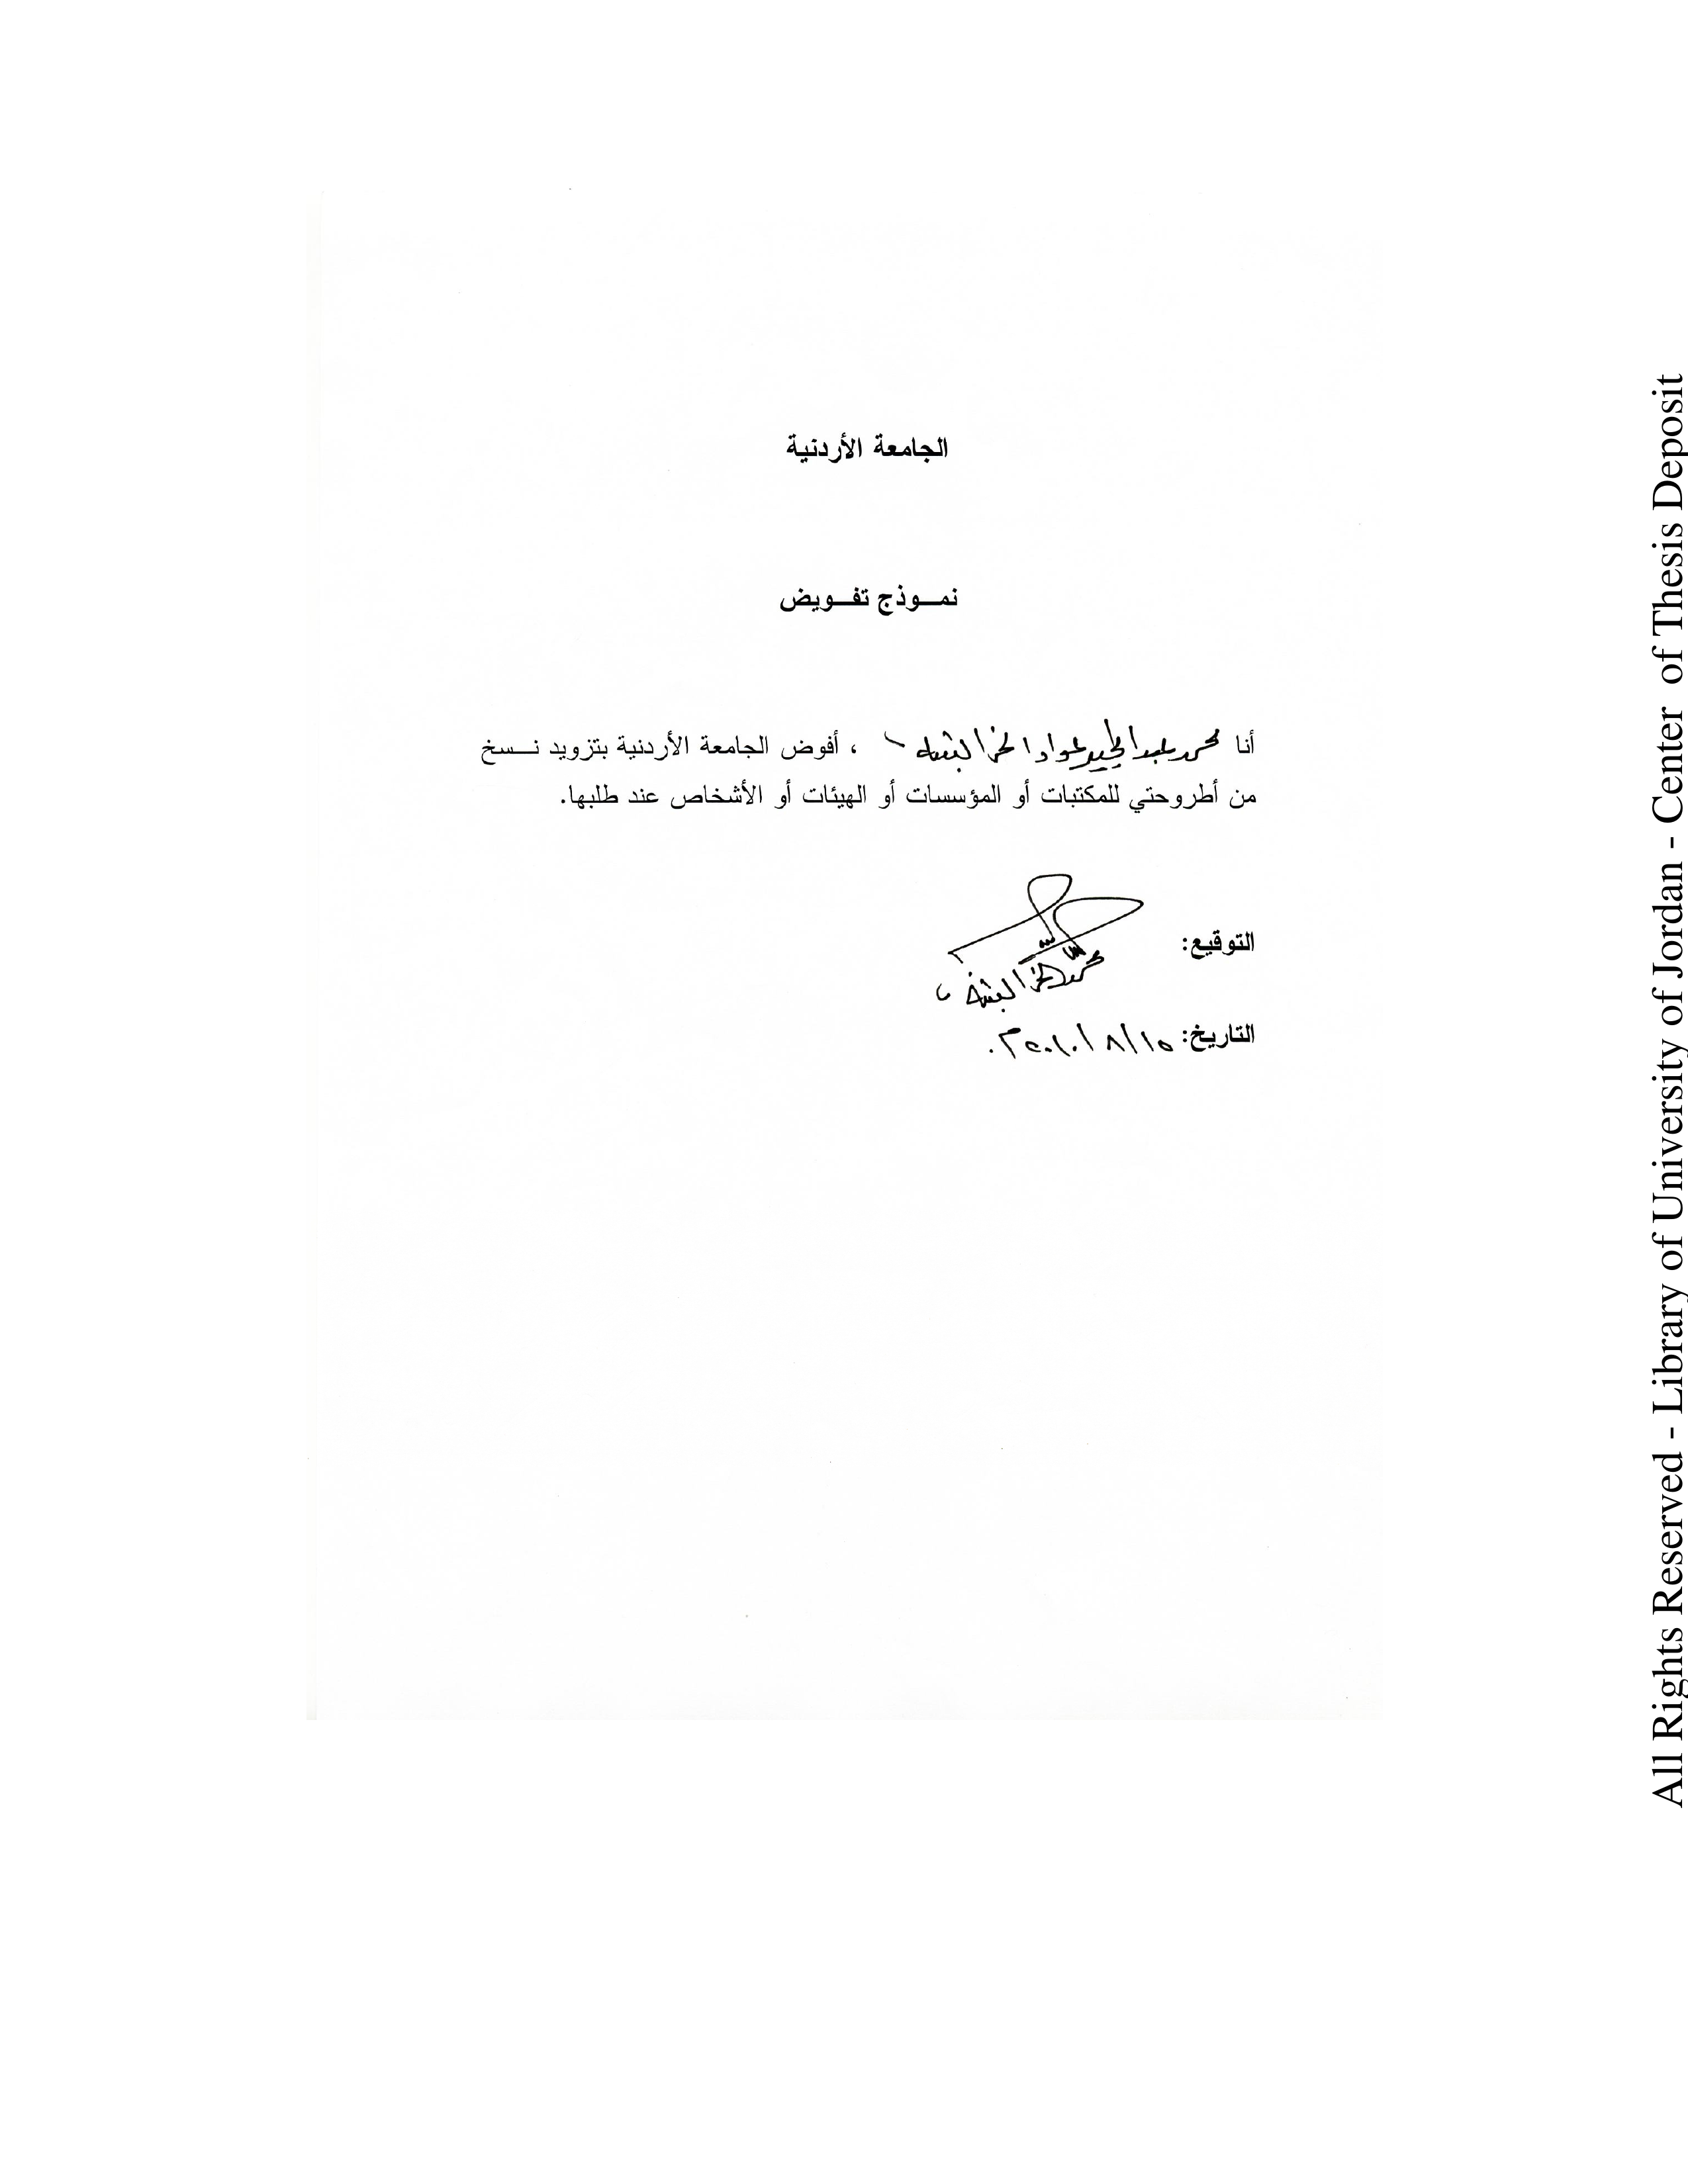 الجامعة الأردنية
نمـــوذج تفـــويض
أنا محمد عبدالمجيد عواد الخرابشه ، أفوض الجامعة الأردنية بتزويد نـــسخ
من أطروحتي للمكتبات أو المؤسسات أو الهيئات أو الأشخاص عند طلبها.
التوقيع:
محمد الخرابشه
التاريخ: ١٥/ ٨/ ٢٠١٠م.
All Rights Reserved - Library of University of Jordan - Center of Thesis Deposit